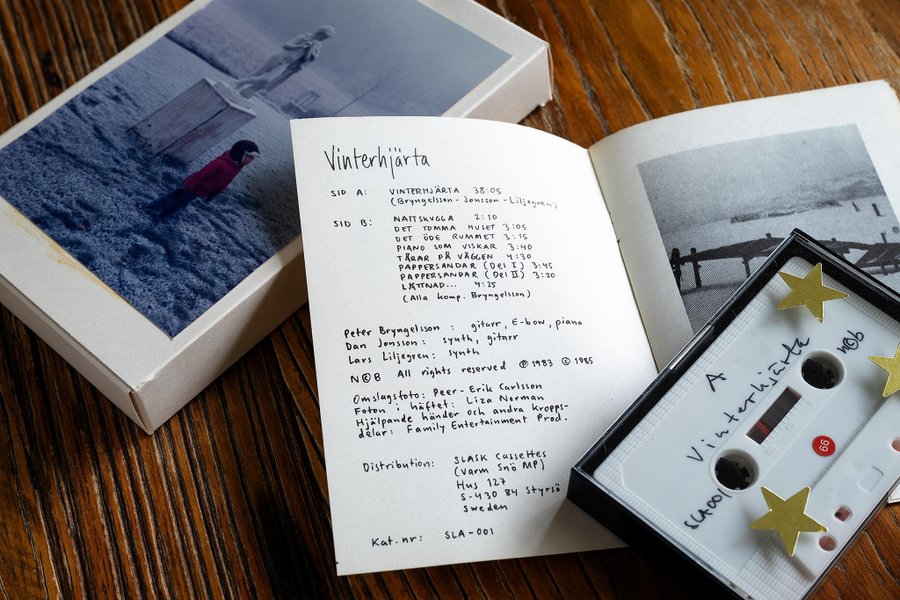 Vinterhjärta
SID A: VINTERHJÄRTA 38:05
(Bryngelsson - Jonsson - Liljegren)
SID B: NATTSKUGGA 2:10
DET TOMMA HUSET 3:05
DET ÖDE RUMMET 3:15
PIANO SOM VISKAR 3:40
TÅRAR PÅ VÄGGEN 4:30
PAPPERSANDAR (Del I) 3:45
PAPPERSANDAR (Del II) 3:20
LÄTTNAD... 4:25
(Alla komp. Bryngelsson)
Peter Bryngelsson : gitarr, E-bow, piano
Dan Jonsson: synth, gitarr
Lars Liljegren: synth
N©B All rights reserved ℗ 1983 © 1985
Omslagsfoto: Peer-Erik Carlsson
Foton i häftet: Liza Norman
Hjälpande händer och andra kropps-
delar: Family Entertainment Prod.
Distribution: SLASK Cassettes
(Varm Snö MP)
Hus 127
S-430 84 Styrsö
Sweden
Kat.nr: SLA-001
A
Vinterhjärta
N©B
SLA001
66